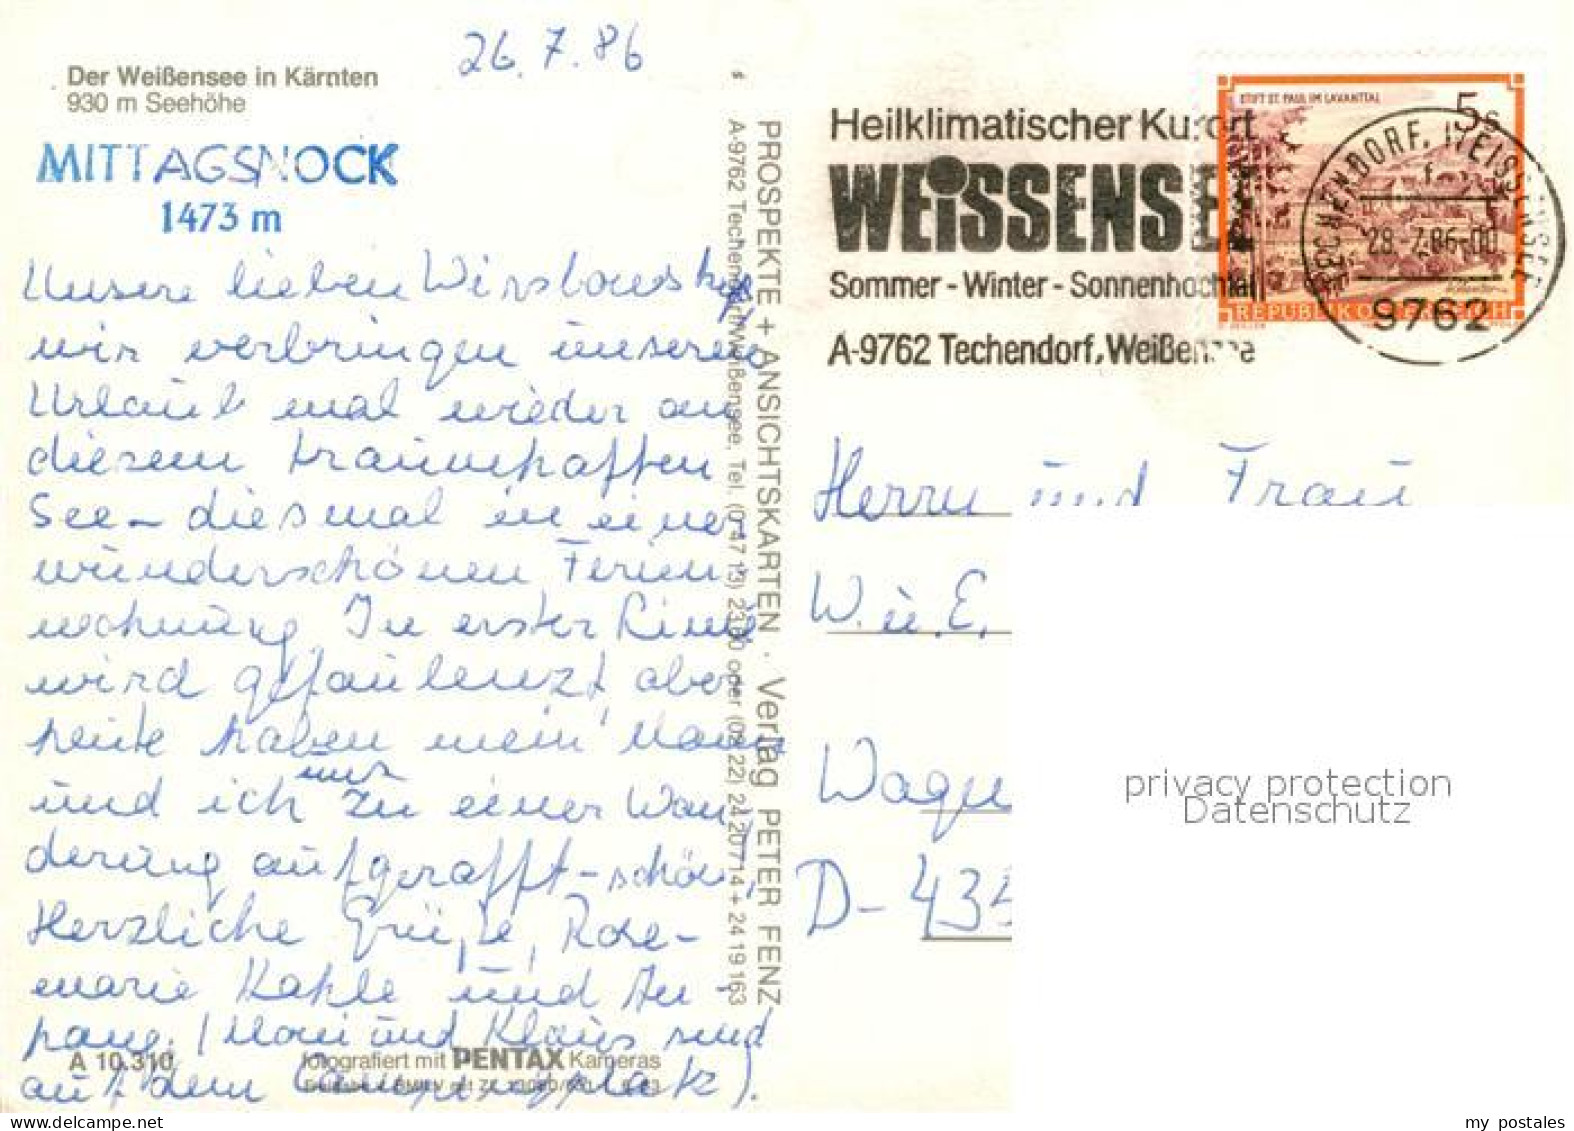 26.7.86
Der Weißensee in Kärnten
930 m Seehöhe
MITTAGSNOCK
1473 m
Unsere lieben
wir verbringen unseren
Urlaub mal wieder an
diesem traumhaften
See – diesmal in einer
wunderschönen Ferien
wohnung. In erster Linie
wird gefaulenzt, aber
heute haben mein Mann
und ich uns zu einer Wan
derung aufgerafft – schön,
Herzliche Grüße, Rose-
marie Kahle und An-
hang. (Moni und Klaus sind
auf dem Campingplatz).
A 10.310
fotografiert mit PENTAX Kameras
s
PROSPEKTE + ANSICHTSKARTEN · Verlag PETER FENZ
A-9762 Techendorf/Weißensee, Tel. (0 47 13) 23 80 oder (02 22) 24 20 714 + 24 19 163
Heilklimatischer Kurort
WEISSENSEE
Sommer - Winter - Sonnenhochtal
A-9762 Techendorf, Weißensee
STIFT ST. PAUL IM LAVANTTAL
5s
REPUBLIK ÖSTERREICH
TECHENDORF, WEISSENSEE
f
28.-7.86-00
9762
Herrn und Frau
W. u. E.
D- 435
privacy protection
Datenschutz
my postales